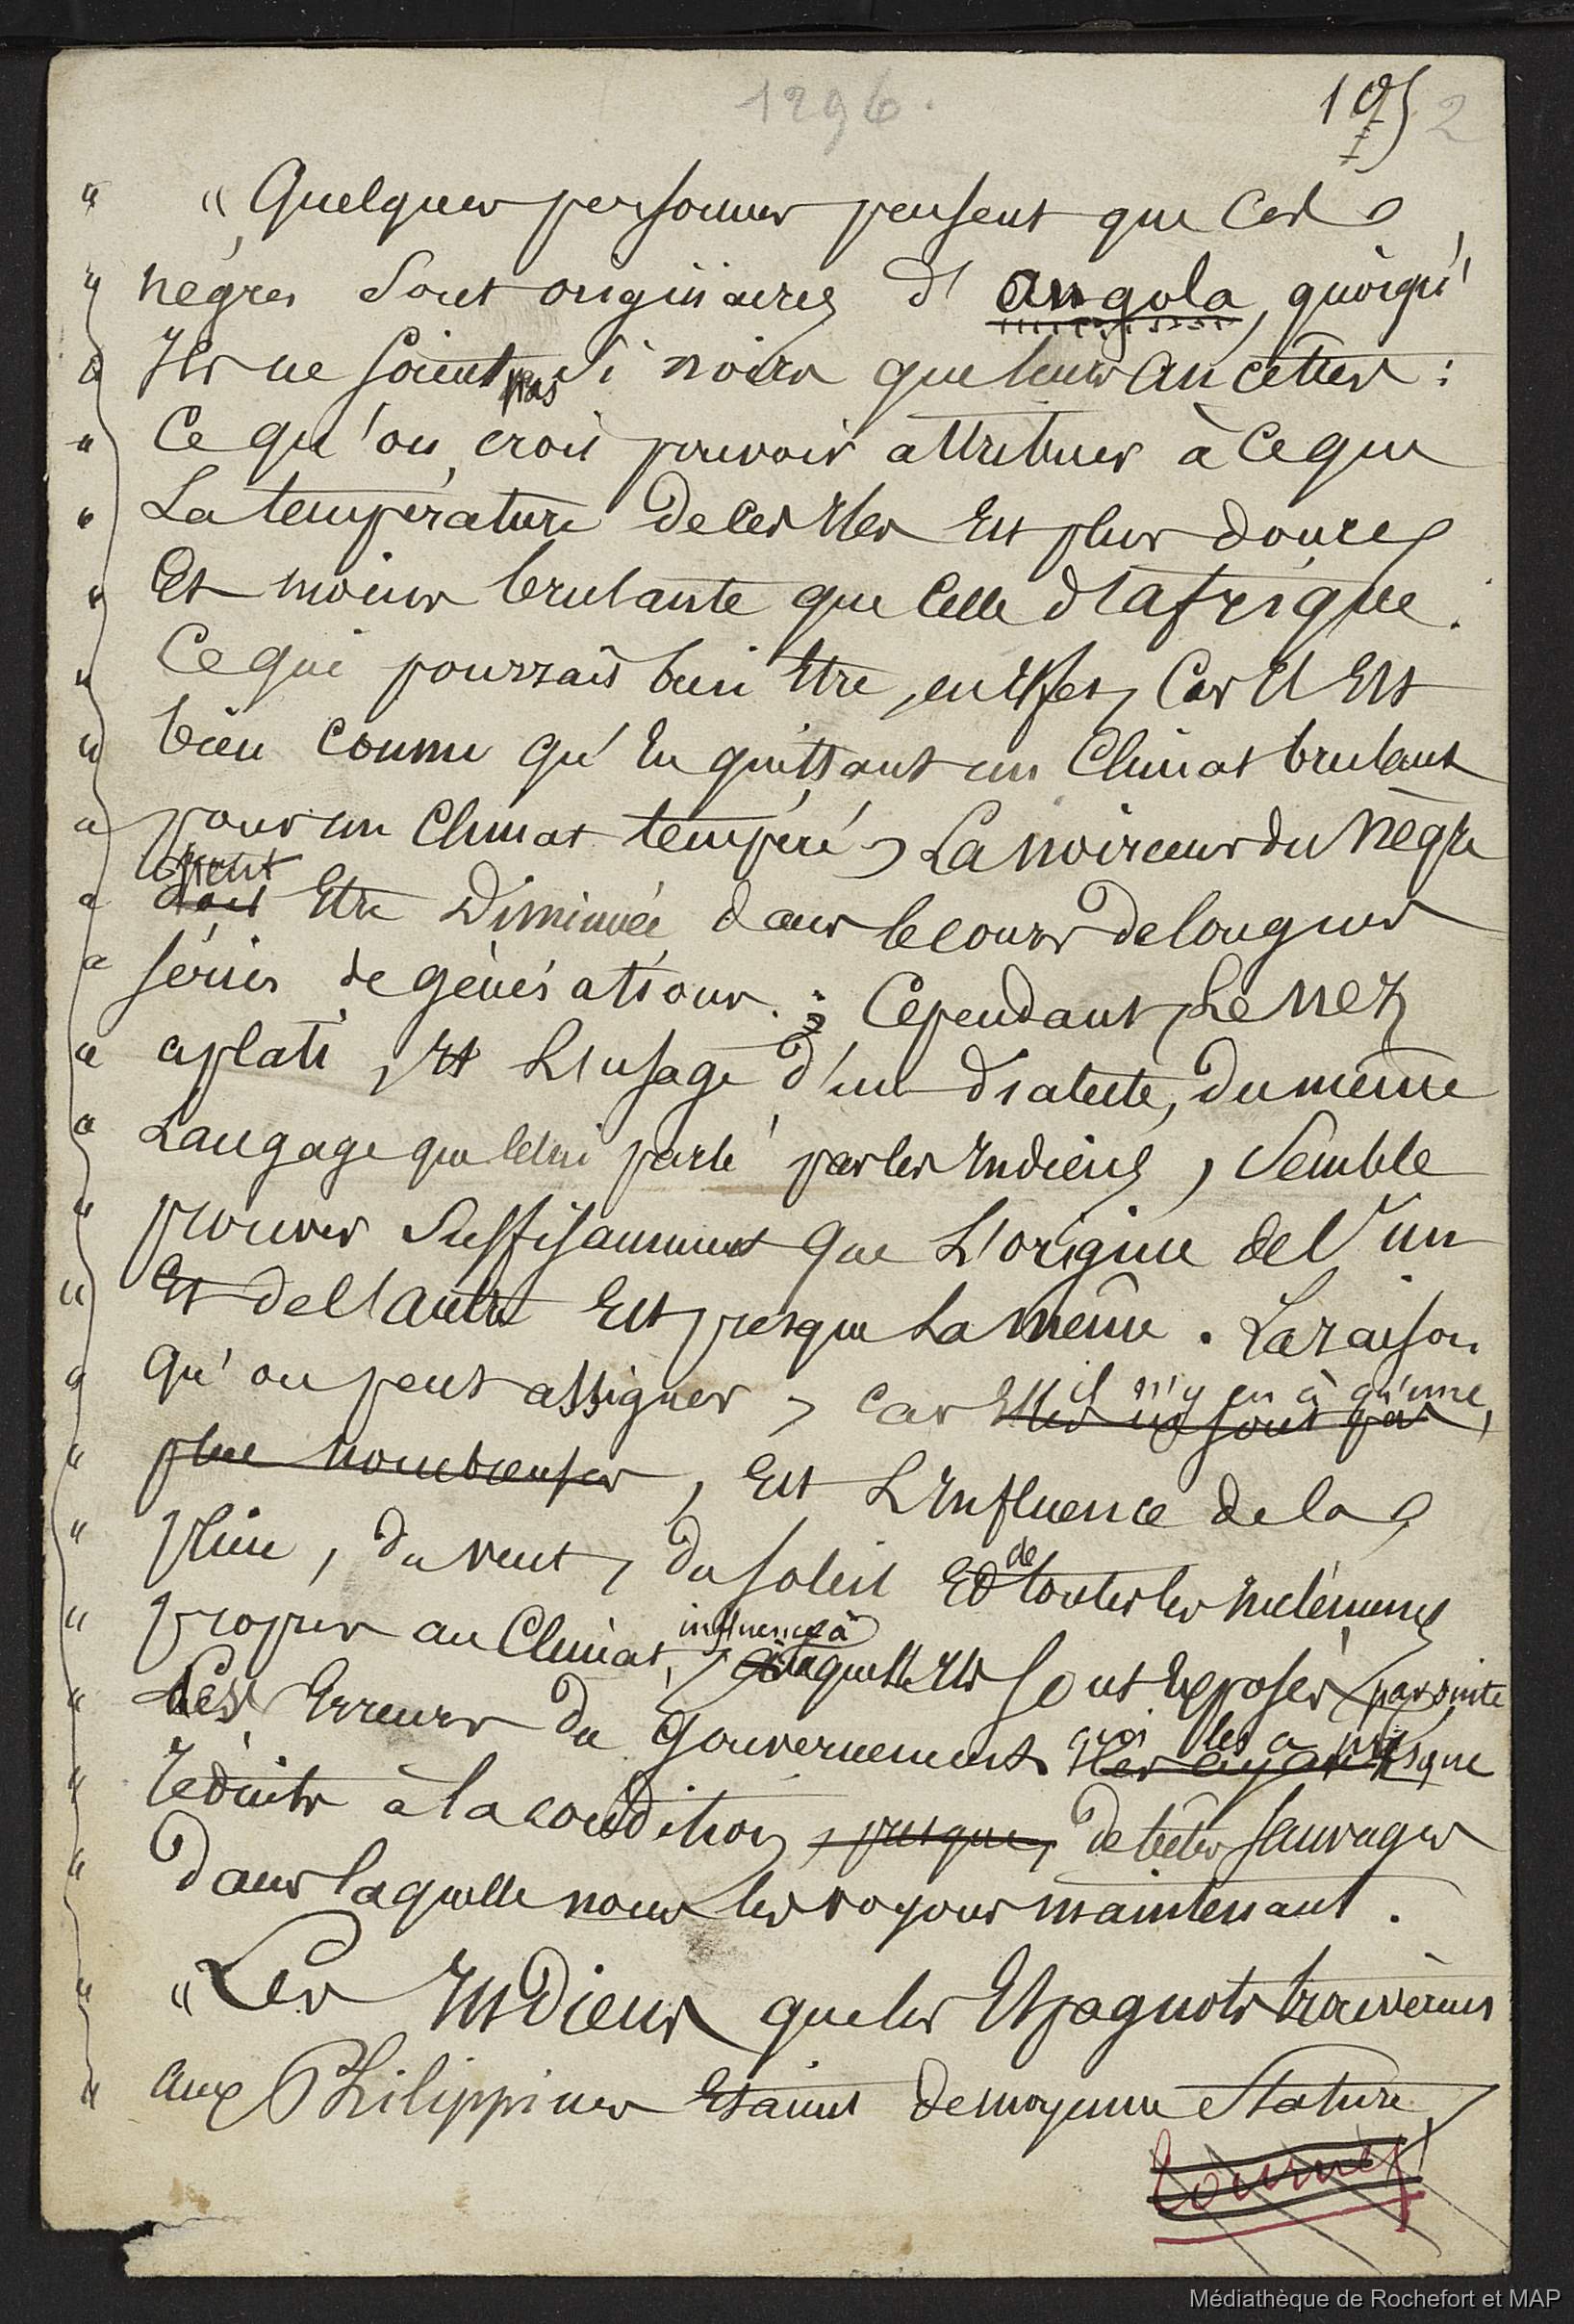 1296.
195 2
" " Quelques personnes pensent que ces
" nègres sont originaires d' angola, quoiqu'
" Ils ne soient pas si noirs que leurs ancêtres :
" Ce qu'on croit pouvoir attribuer à ce que
" La température de ces Iles Est plus douce
" Et moins brulante que Celle d'l'afrique.
" Ce qui pourrait bien Etre, en Effet, Car Il Est
" bien connu qu'En quittant un Climat brulant
" pour un Climat tempéré, La noirceur du Nègre
" peut doit Etre Diminuée dans le cours de longues
" séries de générations. ; Cependant, Le Nez
" aplati, Et L'usage d'un dialecte, du même
" Langage que celui parlé par les Indiens, Semble
" prouver Suffisamment que L'origine de l'un
" Et de l'autre Est presque La même. La raison
" qu'on peut assigner, car il n'y en à qu'une, Elles ne sont pas
" plus nombreuses, Est L'Influence de la
" pluie, du vent, du soleil Et de toutes les Inclémences
" propres au Climat, influence à laquelle Ils sont Exposés par suite
" des Erreurs du Gouvernement qui les a presque Iles ayant
" réduits à la condition, presque, de bêtes sauvages
" Dans laquelle nous les voyons maintenant.
" " Les Indiens que les Espagnols trouvèrent
" aux Philippines Etaient de moyenne Stature,
tournez
Médiathèque de Rochefort et MAP